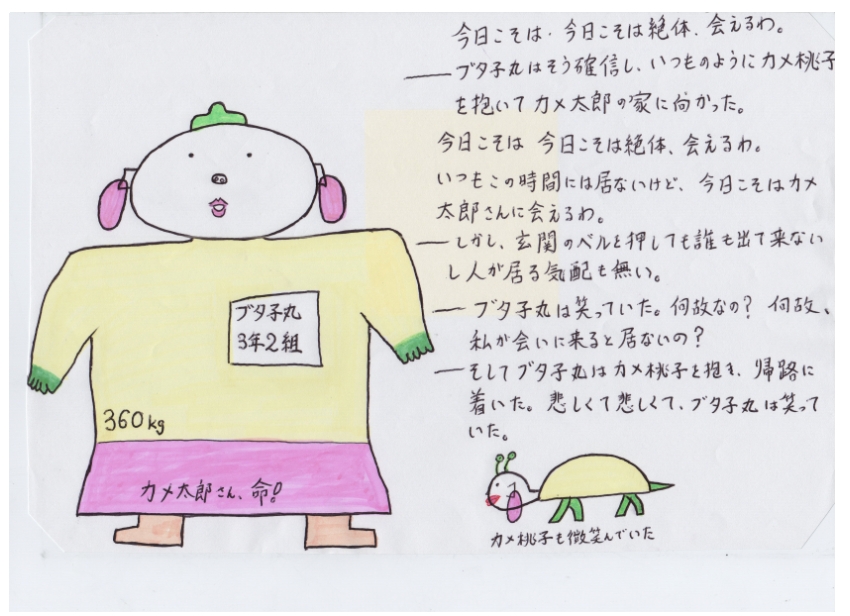 今日こそは・今日こそは絶体、会えるわ。
――ブタ子丸はそう確信し、いつものようにカメ桃子
を抱いてカメ太郎の家に向かった。
今日こそは 今日こそは絶体、会えるわ。
いつもこの時間には居ないけど、今日こそはカメ
太郎さんに会えるわ。
――しかし、玄関のベルを押しても誰も出て来ない
し人が居る気配も無い。
――ブタ子丸は笑っていた。何故なの? 何故、
私が会いに来ると居ないの?
――そしてブタ子丸はカメ桃子を抱き、帰路に
着いた。悲しくて悲しくて、ブタ子丸は笑って
いた。
ブタ子丸
3年2組
360kg
カメ太郎さん、命!
カメ桃子も微笑んでいた